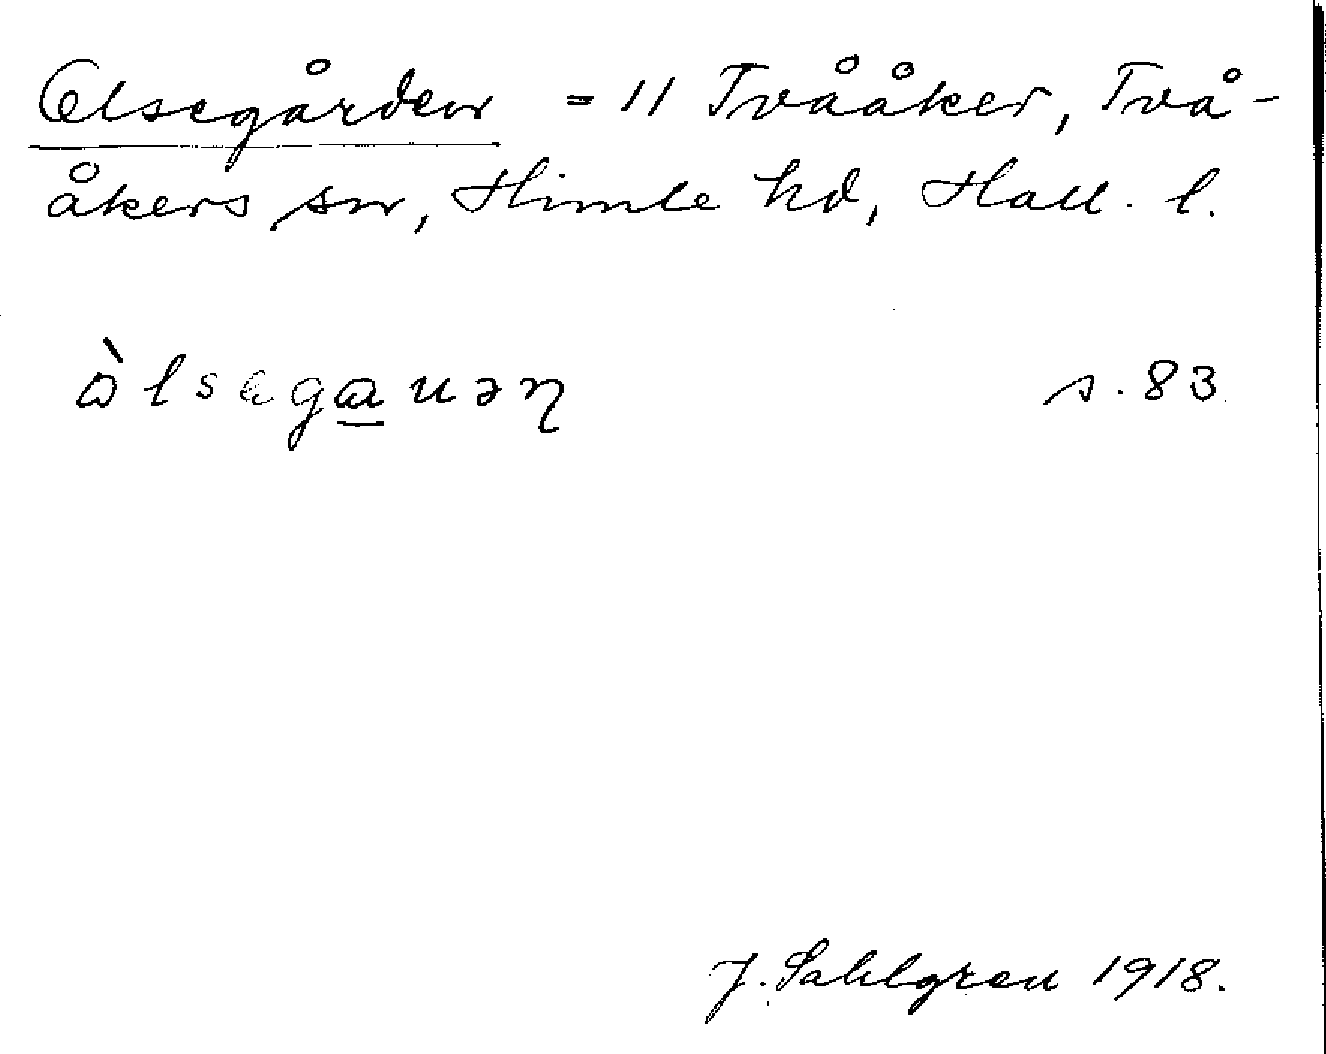 Olsegården = 11 Tvååker, Två-
åkers sn, Himle hd, Hall. l.
ɷ̀lsegauəɳ s. 83
J. Sahlgren 1918.